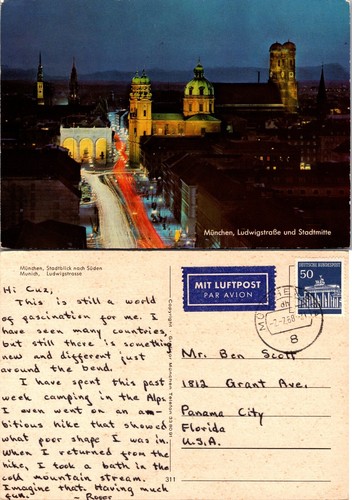 München, Ludwigstraße und Stadtmitte
München, Stadtblick nach Süden
Munich, Ludwigstrasse
Hi Cuz,
This is still a world
of fascination for me. I
have seen many countries,
but still there is something
new and different just
around the bend.
I have spent this past
week camping in the Alps
I even went on an am-
bitious hike that showed
what poor shape I was in.
When I returned from the
hike, I took a bath in the
cold mountain stream.
Imagine that. Having much
fun. - Roger
Copyright
München
Telefon 33 90 91
311
MIT LUFTPOST
PAR AVION
DEUTSCHE BUNDESPOST
50
MÜNCHEN
8
Mr. Ben Scott
1812 Grant Ave.
Panama City
Florida
U.S.A.